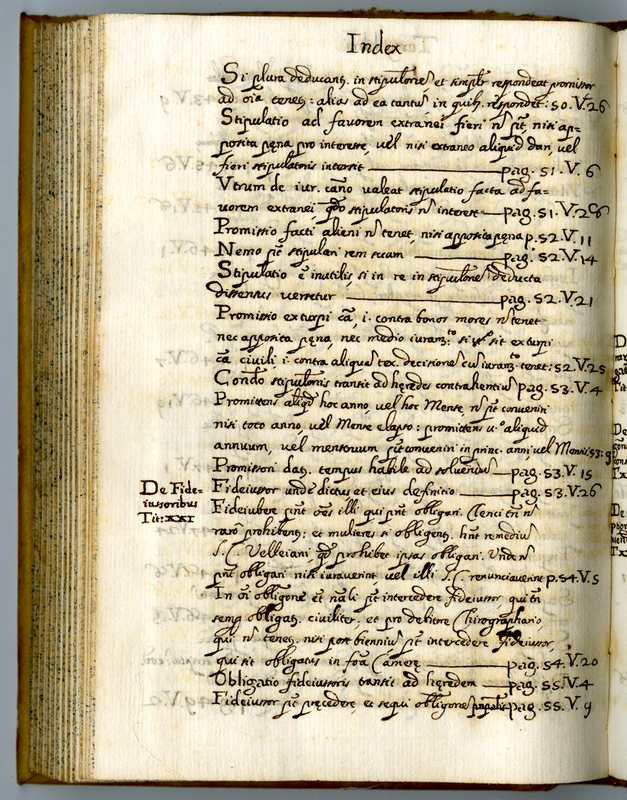 Index
Si plura deducant. in stipulone, et simplr respondeat promissor
ad oia tenet: alias ad ea tantu in quib. respondet: 50. V. 26
Stipulatio ad favorem extranei fieri n pt, nisi ap-
posita pęna pro interesse, vel nisi extraneo aliquid dari, vel
fieri stipulatoris intersit pag. 51. V. 6
Vtrum de iur. cano valeat stipulatio facta ad fa-
uorem extranei qdo stipulatoris n interest pag. 51. V. 26
Promissio facti alieni n tenet, nisi apposita pęna p. 52. V. 11
Nemo pt stipulari rem suam pag. 52. V. 14
Stipulatio ē inutilis, si in re in stipulone deducta
dissensus versetur pag. 52. V. 21
Promissio ex turpi cā, i. contra bonos mores n tenet
nec apposita pęna, nec medio iuramto si sit ex turpi
cā civili i. contra aliqua tex. decisione cu iuramto tenet: 52. V. 25
Condo stipulonis transit ad hęredes contrahentiu pag. 53. V. 4
Promittens aliqd hoc anno, vel hoc Mense, n pt conveniri
nisi toto anno, vel Mense elapso: promittens u.o aliquid
annuum, vel menstruum pt conveniri in princ. anni vel Mensis 53: 9
Promissori dat. tempus habile ad solvendu pag. 53. V. 15
De Fide-
iussoribus
Tit: XXI
Fideiussor unde dictus et eius definitio pag. 53. V. 26
Fideiubere pnt oes illi qui pnt obligari. Clerici tn n
raro prohibent: et mulieres si obligent. hnt remediu
S. C. Velleiani qd prohibet ipsas obligari. Unde n
pnt obligari nisi iuraverint vel illi S. C. renunciaverint p. 54. V. 5
In oi obligone et nali pt intercedere fideiussor, qui tn
semp obligat. civiliter. et pro debitore Chirographario,
qui n tenet. nisi post bienniu pt intercedere fideiussor,
qui sit obligatus in foa Camerę pag. 54. V. 20
Obligatio fideiussoris transit ad hęredem pag. 55. V. 4
Fideiussor pt pręcedere, et sequi obligone pnpalis pag. 55. V. 9